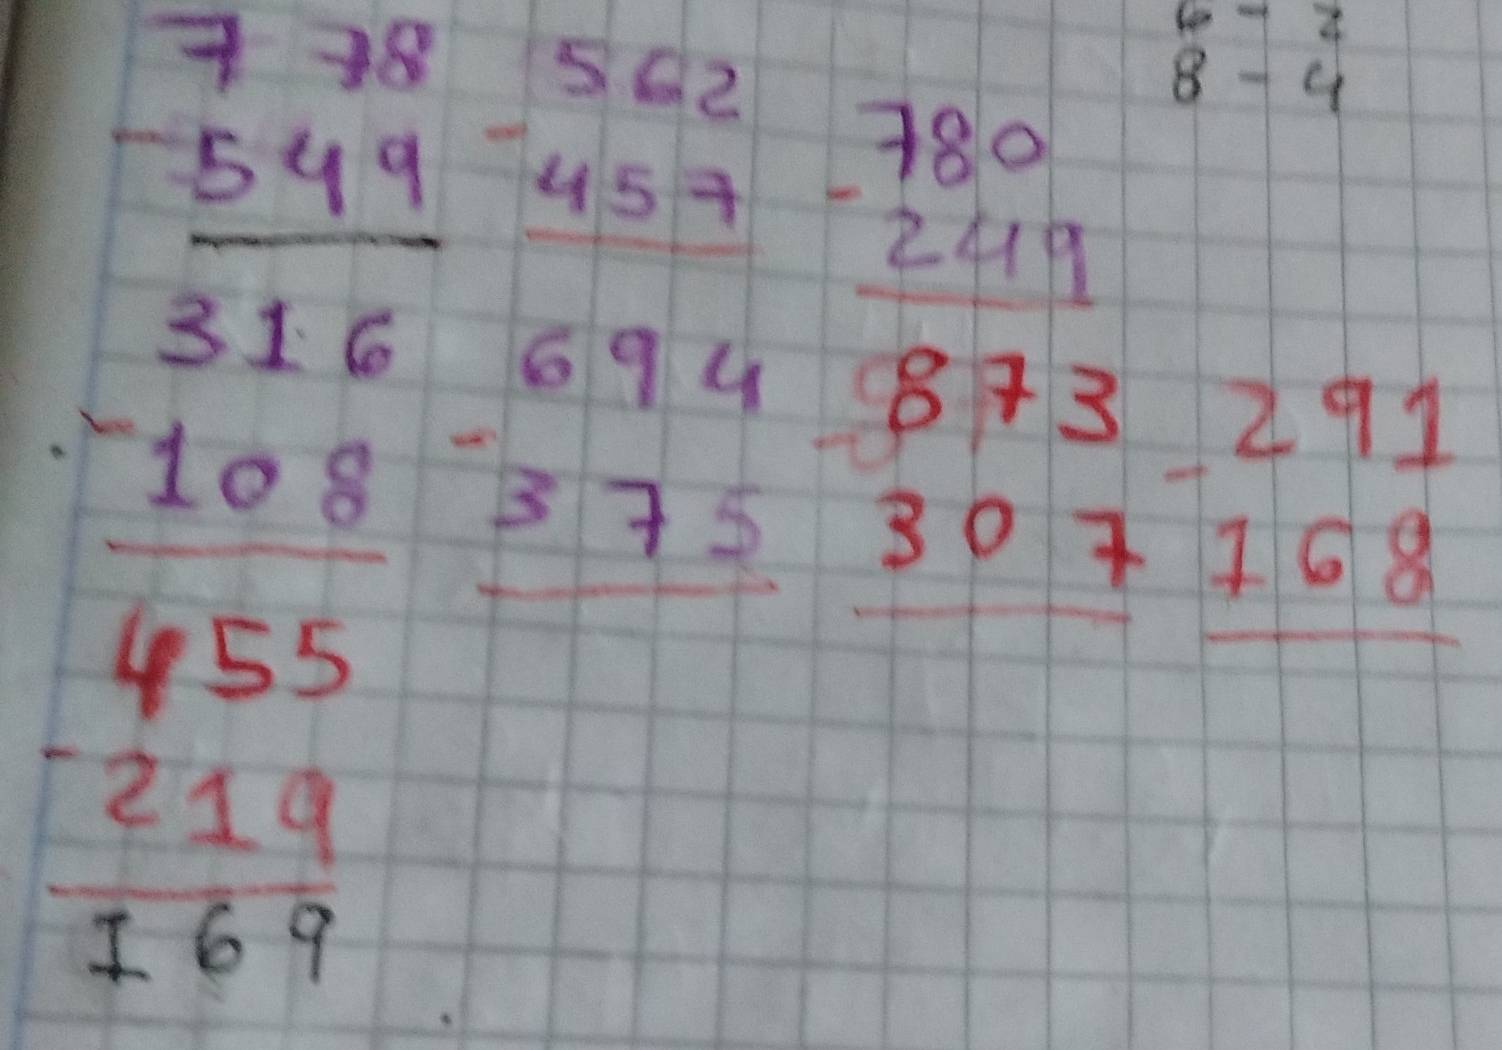 6 - 2
8 - 4
778 562 780
- 549 - 457 - 249
316 694 873 291
- 108 - 375 - 307 - 168
455
- 219
169